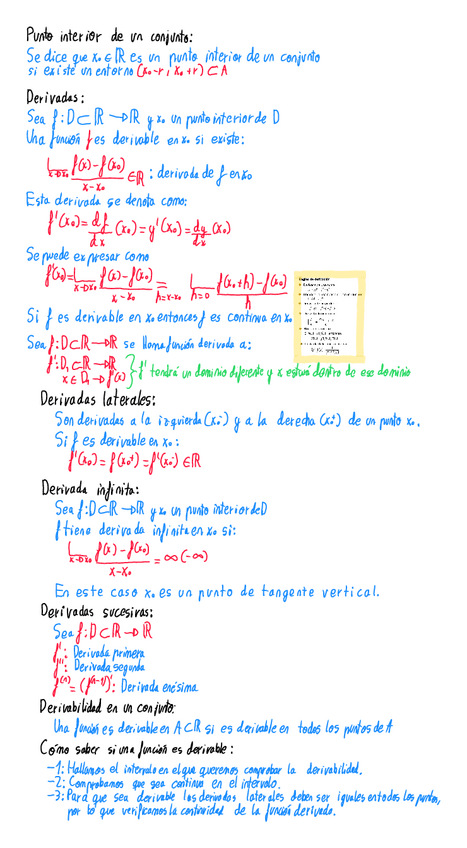 Punto interior de un conjunto:
Se dice que x₀ ∈ ℝ es un punto interior de un conjunto
si existe un entorno (x₀-r, x₀+r) ⊂ A
Derivadas:
Sea f: D ⊂ ℝ → ℝ y x₀ un punto interior de D
Una función f es derivable en x₀ si existe:
Lim x→x₀ (f(x)-f(x₀))/(x-x₀) ∈ ℝ : derivada de f en x₀
Esta derivada se denota como:
f'(x₀) = df/dx (x₀) = y'(x₀) = dy/dx (x₀)
Se puede expresar como
f'(x₀) = Lim x→x₀ (f(x)-f(x₀))/(x-x₀) = h=x-x₀ Lim h→0 (f(x₀+h)-f(x₀))/h
Si f es derivable en x₀ entonces f es continua en x₀
Sea f: D ⊂ ℝ → ℝ se llama función derivada a:
f': D₁ ⊂ ℝ → ℝ
x ∈ D₁ → f'(x) } f' tendrá un dominio diferente y x estará dentro de ese dominio
Derivadas laterales:
Son derivadas a la izquierda (x₀⁻) y a la derecha (x₀⁺) de un punto x₀.
Si f es derivable en x₀:
f'(x₀) = f(x₀⁺) = f'(x₀⁻) ∈ ℝ
Derivada infinita:
Sea f: D ⊂ ℝ → ℝ y x₀ un punto interior de D
f tiene derivada infinita en x₀ si:
Lim x→x₀ (f(x)-f(x₀))/(x-x₀) = ∞ (-∞)
En este caso x₀ es un punto de tangente vertical.
Derivadas sucesivas:
Sea f: D ⊂ ℝ → ℝ
f': Derivada primera
f'': Derivada segunda
f⁽ⁿ⁾ = (f⁽ⁿ⁻¹⁾)': Derivada enésima
Derivabilidad en un conjunto:
Una función es derivable en A ⊂ ℝ si es derivable en todos los puntos de A
Cómo saber si una función es derivable:
-1: Hallamos el intervalo en el que queremos comprobar la derivabilidad.
-2: Comprobamos que sea continua en el intervalo.
-3: Para que sea derivable las derivadas laterales deben ser iguales en todos los puntos,
por lo que verificamos la continuidad de la función derivada.